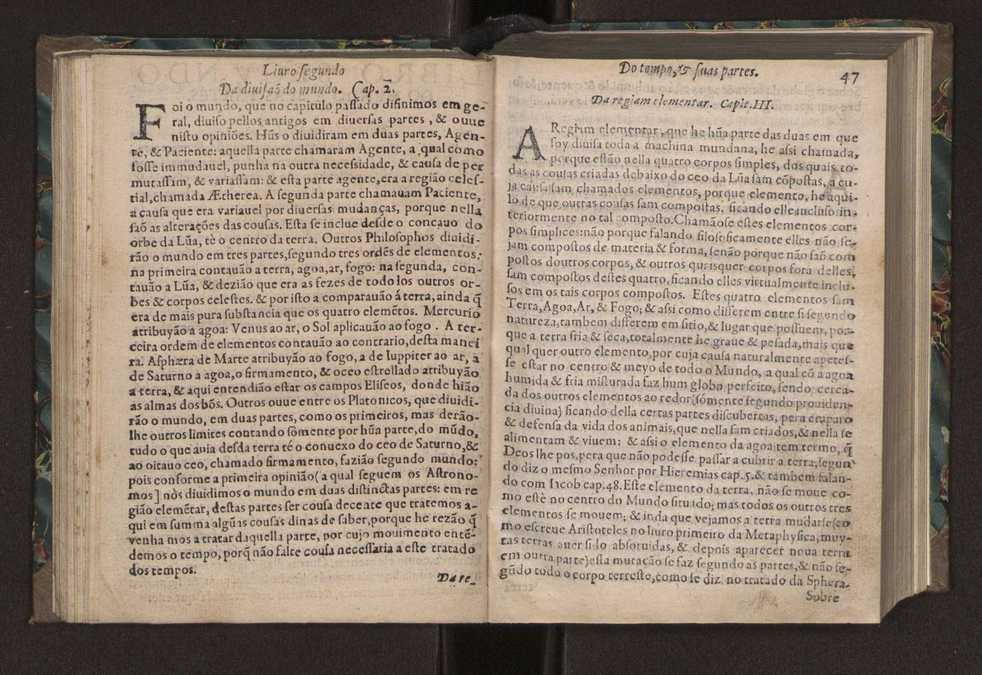 Liuro segundo
Da diuisaõ do mundo. Cap. 2.
Foi o mundo, que no capitulo passado difinimos em ge-
ral, diuiso pellos antigos em diuersas partes, & ouue
nisto opiniões. Hũs o diuidiram em duas partes, Agen-
te, & Paciente: aquella parte chamaram Agente, a qual como
fosse immudauel, punha na outra necessidade, & causa de per
mutassam, & variassam: & esta parte agente, era a região celes-
tial, chamada Ætherea. A segunda parte chamauam Paciente,
a causa que era variauel por diuersas mudanças, porque nella
saõ as alterações das cousas. Esta se inclue desde o concauo do
orbe da Lũa, tè o centro da terra. Outros Philosophos diuidi-
rão o mundo em tres partes, segundo tres ordẽs de elementos:
na primeira contauão a terra, agoa, ar, fogo: na segunda, con-
tauão a Lũa, & dezião que era as fezes de todo los outros or-
bes & corpos celestes. & por isto a comparauão á terra, ainda q̃
era de mais pura substancia que os quatro elemẽtos. Mercurio
atribuyão a agoa: Venus ao ar, o Sol aplicauão ao fogo. A ter-
ceira ordem de elementos contauão ao contrario, desta manei
ra. Asphæra de Marte atribuyão ao fogo, a de Iuppiter ao ar, a
de Saturno a agoa, o firmamento, & o ceo estrollado atribuyão
a terra, & aqui entendião estar os campos Eliseos, donde hião
as almas dos bõs. Outros ouue entre os Platonicos, que diuidi-
rão o mundo, em duas partes, como os primeiros, mas derão-
lhe outros limites contando sòmente por hũa parte, do mũdo,
tudo o que auia desda terra té o conuexo do ceo de Saturno, &
ao oitauo ceo, chamado firmamento, fazião segundo mundo:
pois conforme a primeira opinião (a qual seguem os Astrono-
mos] nòs diuidimos o mundo em duas distinctas partes: em re
gião elemẽtar, destas partes ser cousa deceate que tratemos a-
qui em summa algũas cousas dinas de saber, porque he rezão q̃
venha mos a tratar daquella parte, por cujo mouimento entẽ-
demos o tempo, porq̃ não falte cousa necessaria a este tratado
dos tempos.
Da re-
Do tempo, & suas partes.
47
Da regiam elementar. Capit. III.
A Regiam elementar, que he hũa parte das duas em que
foy diuisa toda a machina mundana, he assi chamada,
porque estão nella quatro corpos simples, dos quais to-
das as cousas criadas debaixo do ceo da Lũa sam cõpostas, a cu-
ja causa sam chamados elementos, porque elemento, he aqui-
lo de que outras cousas sam compostas, ficando elle incluso in-
teriormente no tal composto. Chamãose estes elementos cor-
pos simplices: não porque falando filosoficamente elles não se-
jam compostos de materia & forma, senão porque não saõ com
postos doutros corpos, & outros quaisquer corpos fora delles,
sam compostos destes quatro, ficando elles virtualmente inclu-
sos em os tais corpos compostos. Estes quatro elementos sam
Terra, Agoa, Ar, & Fogo; & assi como differem entre si segundo
natureza, tambem differem em sitio, & lugar que possuem, por-
que a terra fria & seca, totalmente he graue & pesada, mais que
qual quer outro elemento, por cuja causa naturalmente apetes-
se estar no centro & meyo de todo o Mundo, a qual cõ a agoa
humida & fria misturada faz hum globo perfeito, sendo cerca-
da dos outros elementos ao redor (sómente segundo prouiden-
cia diuina) ficando della certas partes discubertas, pera emparo
& defensa da vida dos animais, que nella sam criados, & nella se
alimentam & viuem; & assi o elemento da agoa tem termo, q̃
Deos lhe pos, pera que não podesse passar a cubrir a terra, segun
do diz o mesmo Senhor por Hieremias cap. 5. & tambem falan-
do com Iacob cap. 48. Este elemento da terra, não se moue co-
mo estè no centro do Mundo situado; mas todos os outros tres
elementos se mouem; & inda que vejamos a terra mudarse (co
mo escreue Aristoteles no liuro primeiro da Metaphysica, muy-
tas terras auer sido absoruidas, & depois aparecer noua terra
em outra parte) esta mutação se faz segundo as partes, & não se-
gũdo todo o corpo terreste, como se diz no tratado da Sphera.
Sobre